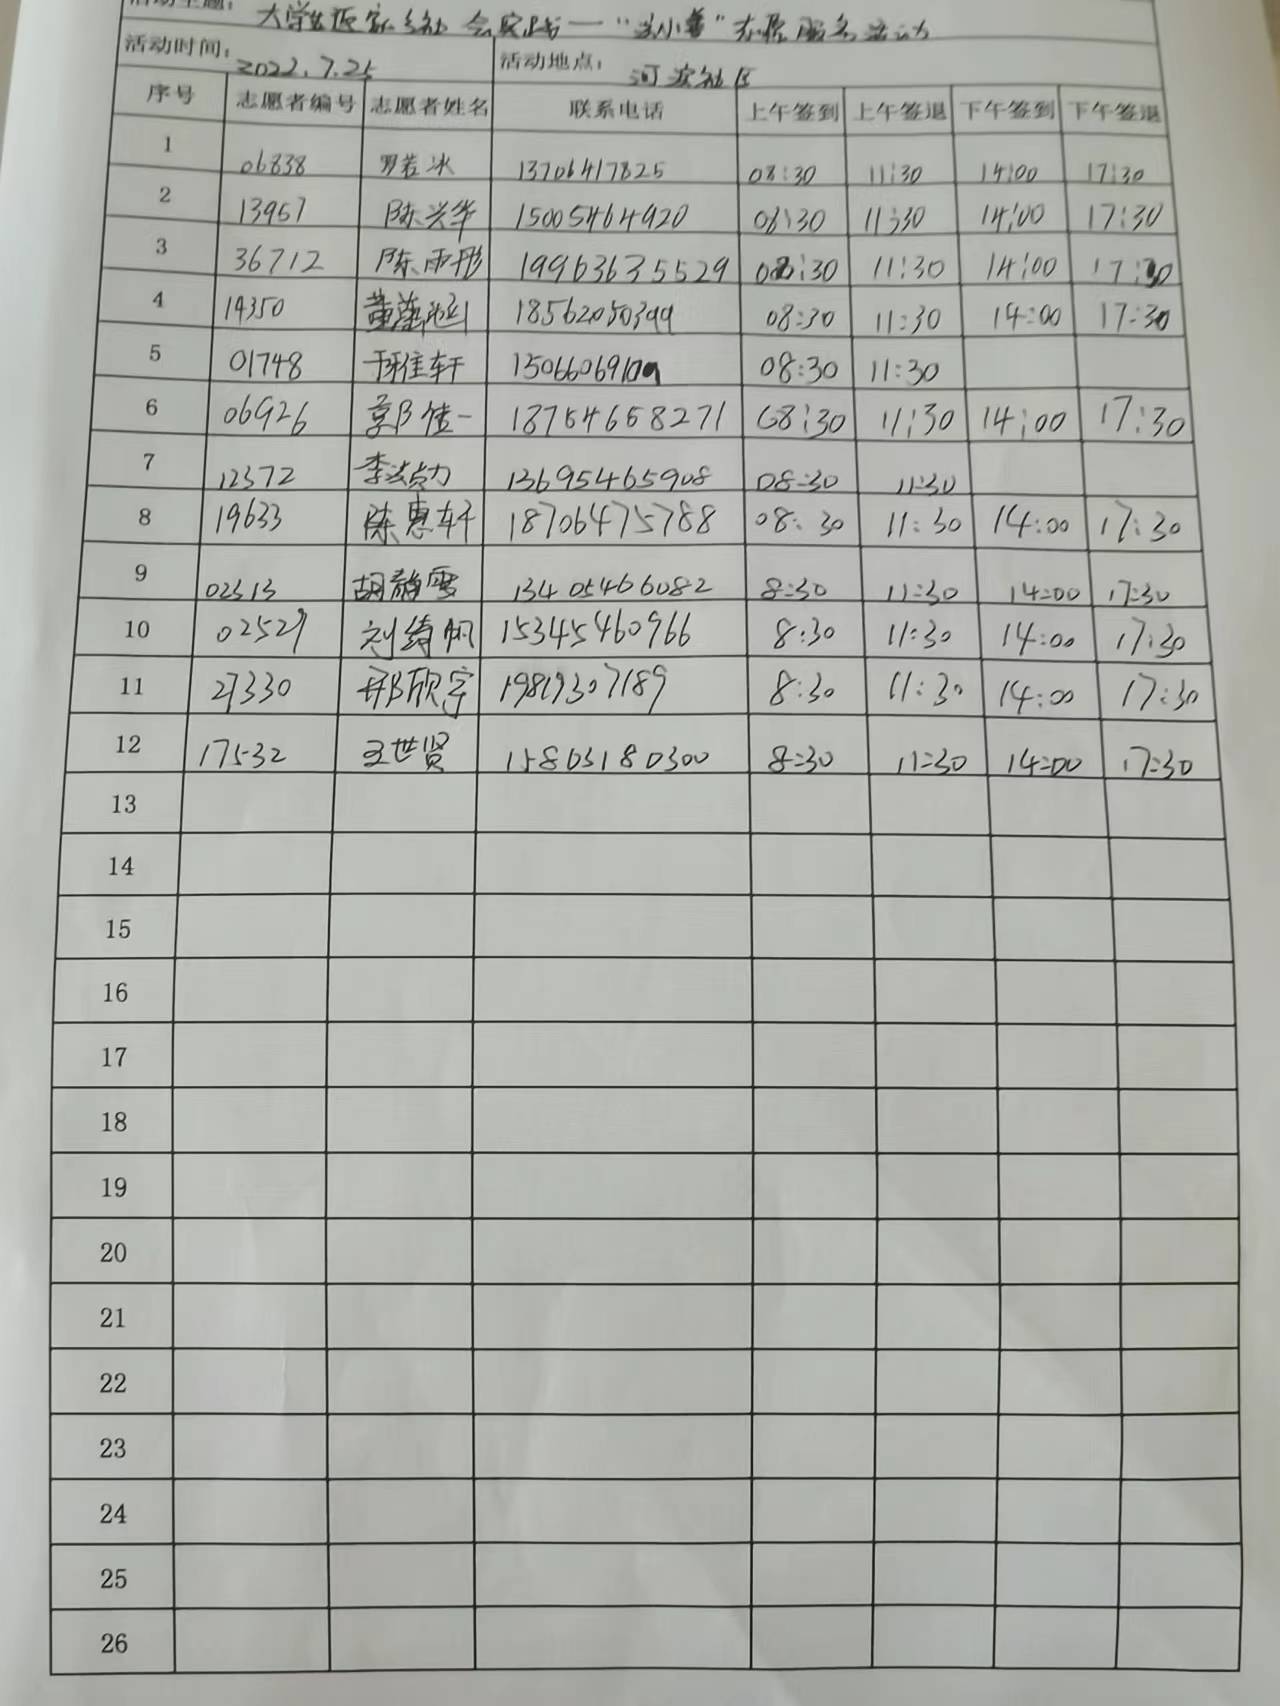 活动主题： 大学生返家乡社会实践一" "志愿服务活动
活动时间： 2022.7.25 活动地点： 河滨社区
序号 志愿者编号 志愿者姓名 联系电话 上午签到 上午签退 下午签到 下午签退
1 06838 罗若冰 13706417825 08:30 11:30 14:00 17:30
2 13957 陈兴华 15005464920 08:30 11:30 14:00 17:30
3 36712 陈雨彤 19963635529 08:30 11:30 14:00 17:30
4 14350 董 18562050399 08:30 11:30 14:00 17:30
5 01748 于雅轩 08:30 11:30
6 06926 一 18754658271 08:30 11:30 14:00 17:30
7 12372 李 13695465908 08:30 11:30
8 19633 陈惠轩 18706475788 08:30 11:30 14:00 17:30
9 02313 胡 雪 13405466082 8:30 11:30 14:00 17:30
10 02529 刘绮帆 15345460966 8:30 11:30 14:00 17:30
11 27330 邢欣宇 19819307189 8:30 11:30 14:00 17:30
12 17532 王世贤 15863180300 8:30 11:30 14:00 17:30
13
14
15
16
17
18
19
20
21
22
23
24
25
26